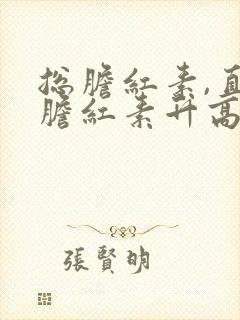 总膽紅素,直
膽紅素升高
張賢明